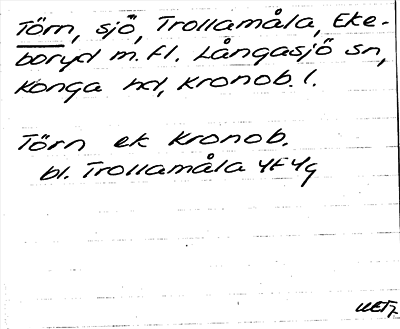 Törn, sjö, Trollamåla, Eke-
boryd m.fl. Långasjö sn,
Konga hd, Kronob. l.
Törn ek Kronob.
bl. Trollamåla 4F4g